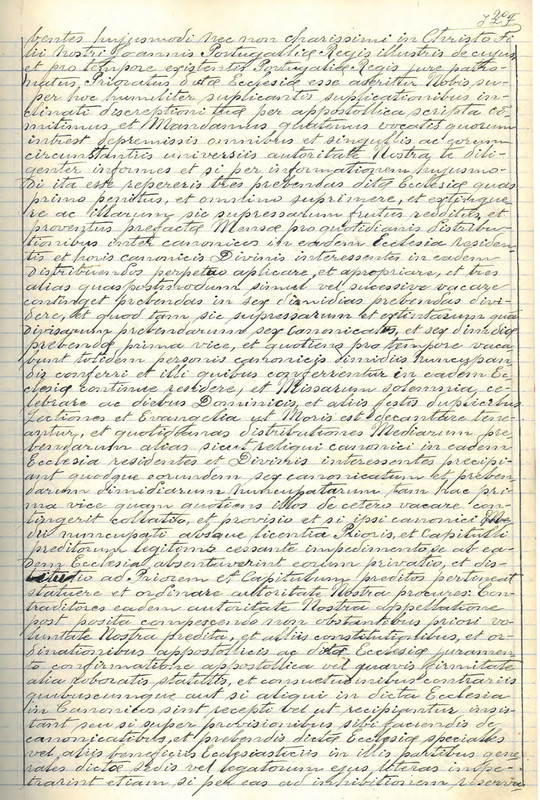 209
bentes hujusmodi nec non charissimi in Christo Fi
lii Nostri Joannis Portugalliæ Regis illustris de cujus
et pro tempore existentis Portugaliæ Regis jure patro-
natus, Prioratus dictæ Ecclesiæ esse aseritur Nobis su-
per hoc humiliter suplicantis suplicationibus in-
clinati discreptioni tuæ per appostollica scripta co-
mitimus, et Mandamus quatenus vocatis quorum
intrest depremissis omnibus et singullis ac eorum
circumstantiis universiis autoritate Nostra te dili-
genter informes et si per informationem hujusmo-
di ita esse repereris tres prebendas dictæ Ecclesiæ quas
primo penitus, et omnino suprimere, et extingue-
re ac illarum sic supressarum frutus redditus, et
proventus prefactæ Mensæ pro quotidianis distribu-
tionibus inter canonicos in eadem Ecclesia residen-
tis et horis canonicis Divinis interessentes in eadem
distribuendos perpetuo aplicare, et apropriare, et tres
alias quas postmodum simul vel sucesive vacare
continget prebendas in sex dimidias prebendas divi-
dere, et quod tam sic supressarum et extintarum quã
divisarum prebendarum sex canonicatus, et sex dimidiæ
prebendæ prima vice, et quotiens pro tempore vaca-
bunt totidem personis canonicis dimidiis nuncupan-
dis conferri et illi quibus conferrentur in eadem Ec-
clesia continue residere, et Missarum solemnia, ce-
lebrare ac diebus Dominicis, et aliis festis duplicibus
Lectiones et Evangelia ut Moris est decantare tene-
antur, et quotidianas distributiones Mediarum pre-
bendarum alias sicut reliqui canonici in eadem
Ecclesia residentes et Divinis interessentes precipi-
ant quodque eorundem sex canonicatum et preben-
darum dimidiarum nuncupatarum tam hac pri-
ma vice quam quotiens illos de cetero vacare con-
tingerit collatio, et provisio et si ipsi canonici Me-
dii nuncupati absque licentia Prioris, et Capitulli
preditorum legitimo cessante impedimento se ab ea-
dem Ecclesia absentaverint eorum privatio, et dis-
ad Priorem et Capitulum preditos pertineat
statuere et ordinare autoritate Nostra procures: Con-
traditores eadem autoritate Nostra appellatione
post posita compescendo non obstantibus priori vo-
luntate Nostra predita, et alliis constitutionibus, et or-
dinationibus appostollicis ac dictæ Ecclesiæ juramen-
to confirmatione appostollica vel quavis firmitate
alia roboratis statutis, et consuetudinibus contrariis
quibuscumque aut si aliqui in dicta Ecclesia
in Canonicos sint recepti vel ut recipiantur insis-
tant seu si super provisionibus sibi faciendis de
canonicatibus, et prebendis dictæ Ecclesiæ speciales
vel aliis beneficiis Ecclesiasticis in illis partibus gene-
rales dictæ sedis vel legatorum ejus literas impe-
trarint etiam si per eas ad inhibitionem reserva